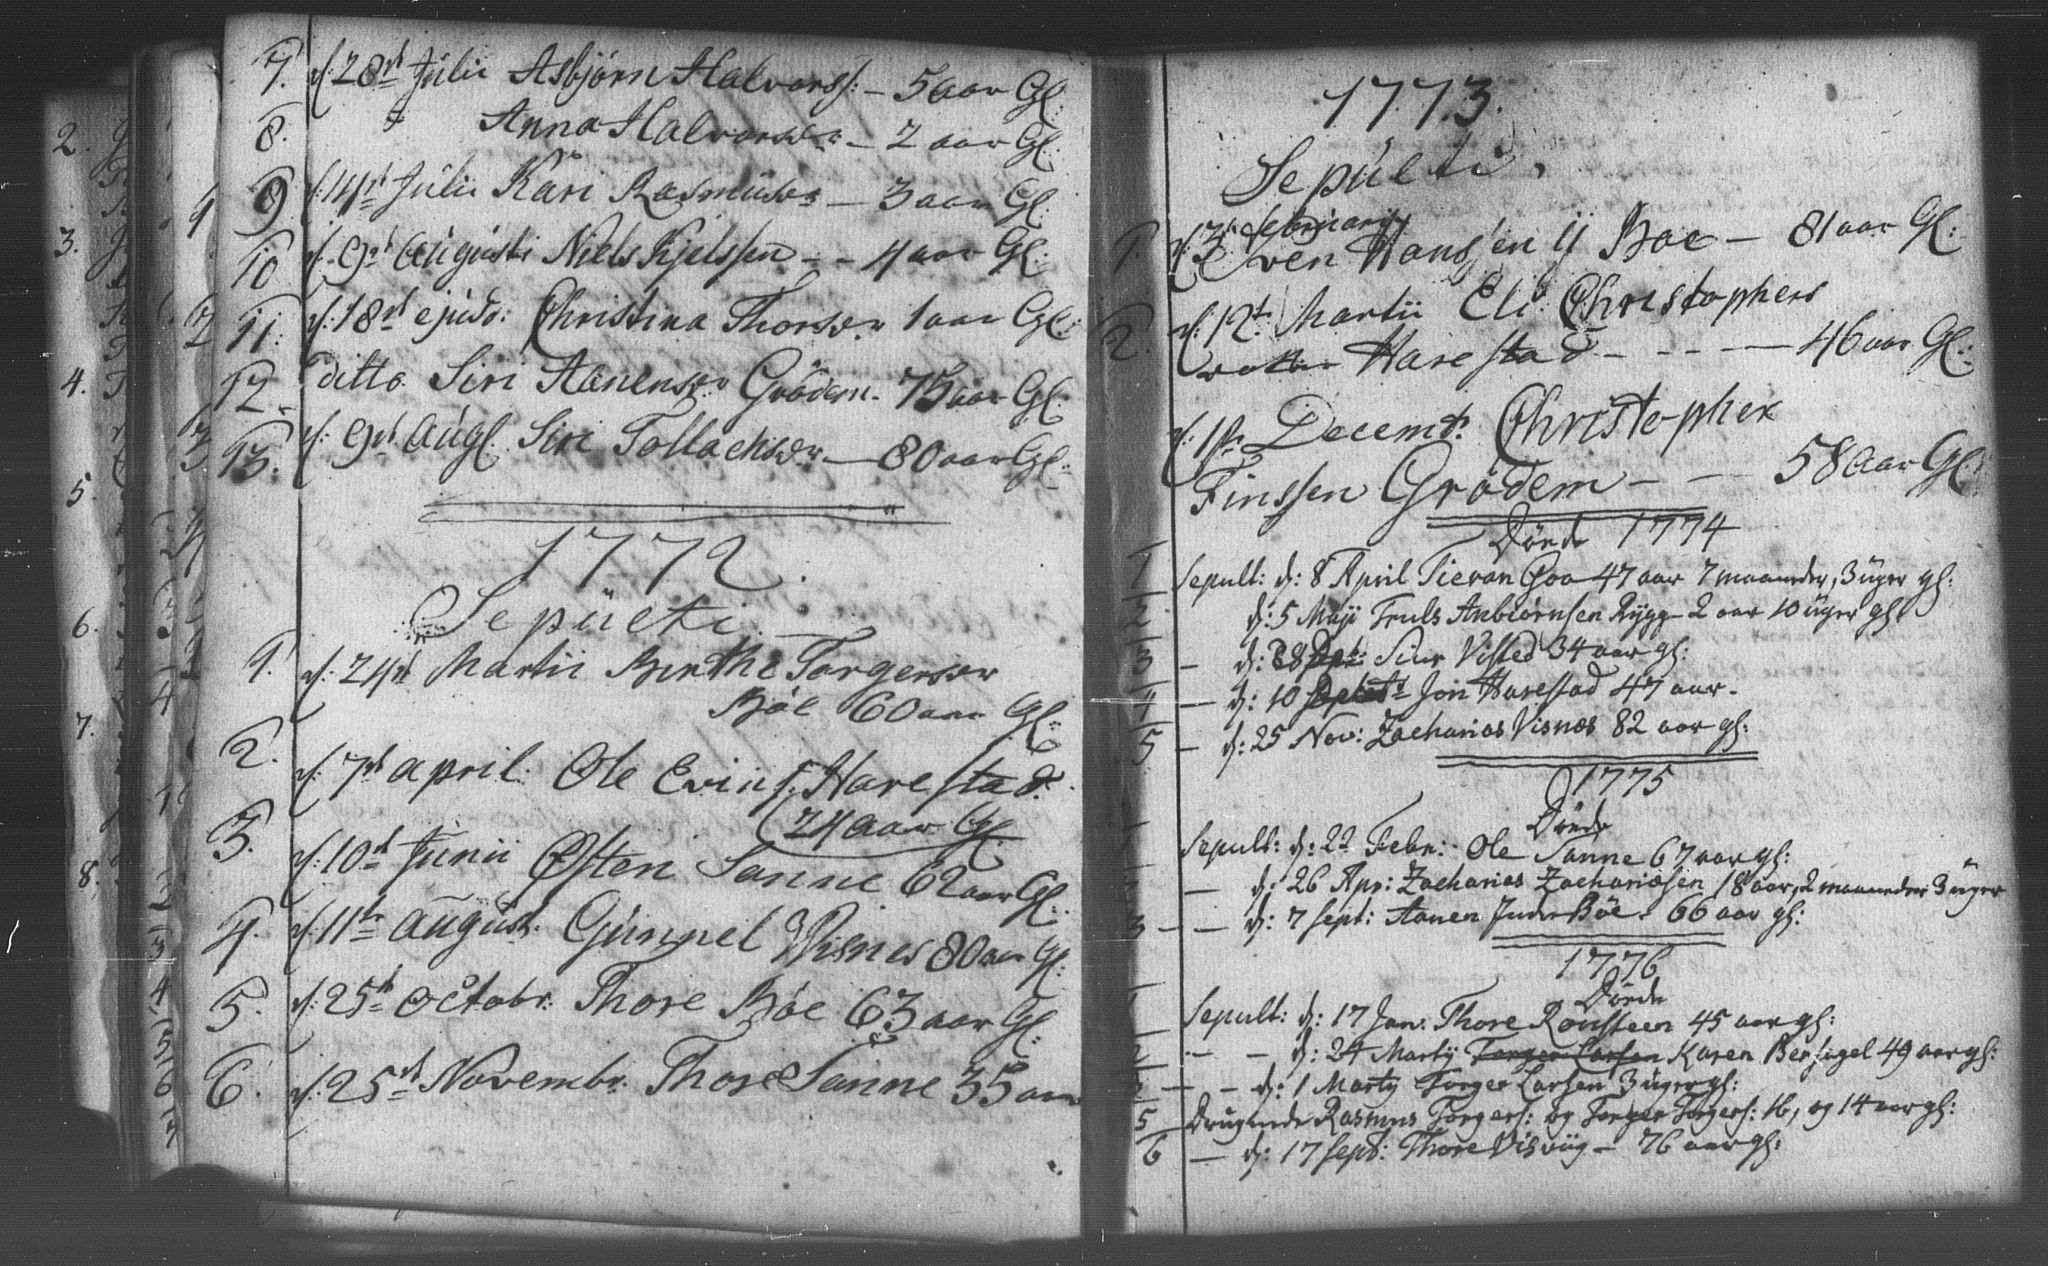 7. d: 28de Julii Asbjørn Halvors: – 5 aar Gl:
8. Anna Halvorsdr – 2 aar Gl:
9 d: 14de Julii Kari Rasmusdr – 3 aar Gl:
10 d: 9de Augusti Niels Kjelssen – – 4 aar Gl:
11. d: 18de ejusd: Christina Thorsdr 1 aar Gl:
12. ditto. Siri Aanensdr Grödem – 75 aar Gl:
13. d: 9de Augl. Siri Tollachsdr – 80 aar Gl:
1772.
Sepulti
1. d: 24de Martii Birthe Torgersdr
Böe 60 aar Gl:
2. d: 7de april: Ole Evins: Harestad.
24 aar Gl.
3. d: 10de Junii Østen Sanne 62 aar Gl:
4. d: 11te August: Gunnel Visnes 80 aar Gl:
5. d: 25de Octobr: Thore Böe 63 aar Gl:
6. d: 25de Novembr: Thore Sanne 35 aar
1773.
Sepulti.
Februarij
1. d: Even Hanssen Boe – 81 aar Gl:
2. d: 12te Martii Eli Christophers
Harestad – – – – 46 aar Gl:
d: 1ste Decembr: Christopher
Finssen Grödem – – 58 aar Gl:
Döde 1774
1 Sepult: d: 8 April Pieran Goa 47 aar 7 maaneder, 3 uger gl:
2 d: 5 Maji Truls Anbiörnsen Rygg 2 aar 10 uger gl:
3 – d: 28 Apr: Siur Visted 34 aar gl:
4 – d: 10 Septbr Jon Harestad 47 aar.
5 – d: 25 Nov: Zacharias Visnes 82 aar gl:
1775
Döde
1 Sepult: d: 22 Febr: Ole Sanne 67 aar gl:
2 – d: 26 Apr: Zacharias Zachariasen 18 aar, 2 maaneder 3 uger
3 – – d: 7 Sept: Aanen Böe. 66 aar gl:
1776
Döde
1 Sepult: d: 17 Jan: Thore Rönsteen 45 aar gl:
2 – – d: 24 Martij Torger Larsen Karen Bersagel 49 aar gl:
3 – – d: 1 Martij Torger Larsen 3 uger gl:
5 Druknede Rasmus Torgers: og Torger Torgers: 16, og 14 aar gl:
6 – d: 17 Sept: Thore Visvig – 76 aar gl: